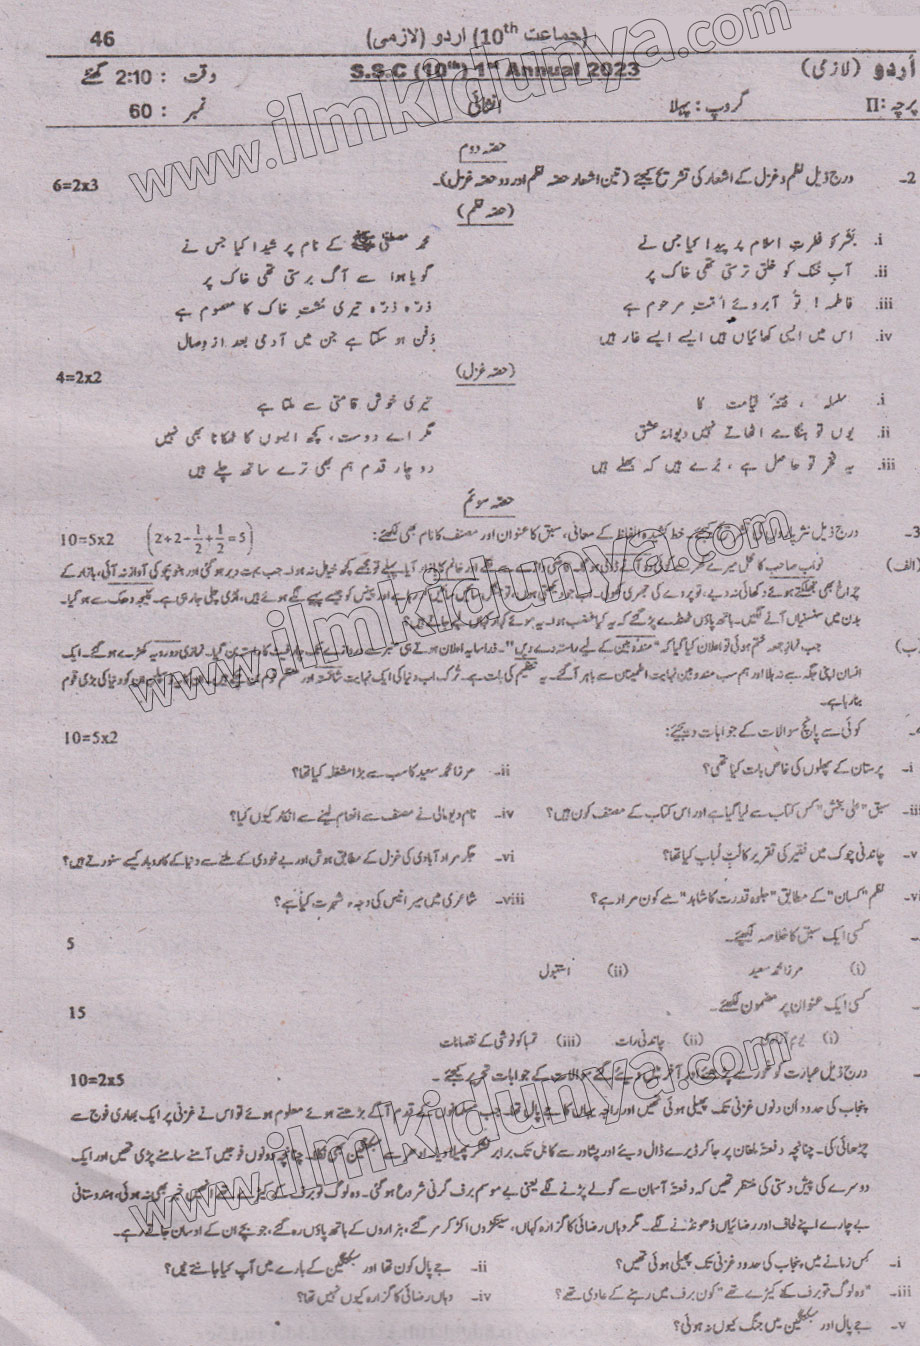 46 (جماعت 10th) اردو (لازمی)
اُردو (لازمی) S.S.C (10th) 1st Annual 2023 وقت : 2:10 گھنٹے
پرچہ :II گروپ : پہلا انشائی نمبر : 60
حصّہ دوم
2۔ درج ذیل نظم و غزل کے اشعار کی تشریح کیجئے (تین اشعار حصّہ نظم اور دو حصّہ غزل)۔ 6=2x3
(حصّہ نظم)
i. بشر کو فطرتِ اسلام پر پیدا کیا جس نے محمد مصطفیٰ ﷺ کے نام پر شیدا کیا جس نے
ii. آبِ خنک کو خلق ترستی تھی خاک پر گویا ہوا سے آگ برستی تھی خاک پر
iii. فاطمہ ! تُو آبروئے اُمتِ مرحوم ہے ذرّہ ذرّہ تیری مُشتِ خاک کا معصوم ہے
iv. اس میں ایسی کھائیاں ہیں ایسے ایسے غار ہیں دفن ہو سکتا ہے جن میں آدمی بعد از وصال
4=2x2 (حصّہ غزل)
i. سلسلہ ، فتنۂ قیامت کا تیری خوش قامتی سے ملتا ہے
ii. یوں تو ہنگامے اٹھاتے نہیں دیوانۂ عشق مگر اے دوست، کچھ ایسوں کا ٹھکانا بھی نہیں
iii. یہ فخر تو حاصل ہے ، بُرے ہیں کہ بھلے ہیں دو چار قدم ہم بھی ترے ساتھ چلے ہیں
حصّہ سوئم
3۔ درج ذیل نثر پاروں کی تشریح کیجئے۔ خط کشیدہ الفاظ کے معانی، سبق کا عنوان اور مصنف کا نام بھی لکھئے: (2+2-1/2+1/2=5) 10=5x2
(الف) نواب صاحب کا محل میرے گھر سے آیا۔ پہلے تو مجھے کچھ خیال نہ ہوا۔ جب بہت دیر ہو گئی اور ہٹو بچو کی آواز نہ آئی، بازار کے
چراغ بھی جھلکتے ہوئے دکھائی نہ دیے، تو پردے کی جھری کھولی۔ اب جو دیکھتی ہوں، تو جنگل سائیں سائیں کر رہا ہے اور پینس کو جیسے پہیے لگے ہوئے ہیں، اُڑی چلی جا رہی ہے۔ کلیجہ دھک سے ہو گیا۔
بدن میں سنسنیاں آنے لگیں۔ ہاتھ پاؤں ٹھنڈے پڑ گئے کہ یہ کیا غضب ہوا۔ یہ موئے کہاں لیے جاتے ہیں؟
(ب) جب نمازِ جمعہ ختم ہوئی تو اعلان کیا گیا کہ "مندوبین کے لیے راستہ دے دیں"۔ ذرا سا یہ اعلان ہوتے ہی منبر سے دروازے تک بن گیا۔ نمازی دو رویہ کھڑے ہو گئے۔ ایک
انسان اپنی جگہ سے نہ ہلا اور ہم سب مندوبین نہایت اطمینان سے باہر آ گئے۔ یہ تنظیم کی بات ہے۔ تُرک اب دنیا کی ایک نہایت شائستہ اور منظم قوم ان کو دنیا کی بڑی قوم
بنا رہا ہے۔
کوئی سے پانچ سوالات کے جوابات دیجئے: 10=5x2
i۔ پرستان کے پھلوں کی خاص بات کیا تھی؟ ii۔ مرزا محمد سعید کا سب سے بڑا مشغلہ کیا تھا؟
iii۔ سبق "علی بخش" کس کتاب سے لیا گیا ہے اور اس کتاب کے مصنف کون ہیں؟ iv۔ نام دیو مالی نے مصنف سے انعام لینے سے انکار کیوں کیا؟
v۔ چاندنی چوک میں فقیر کی تقریر کا لُبِّ لُباب کیا تھا؟ vi۔ جگر مراد آبادی کی غزل کے مطابق ہوش اور بے خودی کے ملنے سے دنیا کے کاروبار کیسے سنورتے ہیں؟
نظم "کسان" کے مطابق "جلوہ قدرت کا شاہد" سے کون مراد ہے؟ viii۔ شاعری میں میر انیس کی وجہ شہرت کیا ہے؟
کسی ایک سبق کا خلاصہ لکھئے۔ 5
(i) مرزا محمد سعید (ii) استنبول
کسی ایک عنوان پر مضمون لکھئے۔ 15
(i) یومِ آزادی (ii) چاندنی رات (iii) تمباکو نوشی کے نقصانات
درج ذیل عبارت کو غور سے پڑھئے اور آخر میں دیئے گئے سوالات کے جوابات تحریر کیجئے۔ 10=2x5
پنجاب کی حدود اُن دنوں غزنی تک پھیلی ہوئی تھیں اور راجہ یہاں کا جے پال تھا۔ جب مسلمانوں کے قدم آگے بڑھتے ہوئے معلوم ہوئے تو اس نے غزنی پر ایک بھاری فوج سے
چڑھائی کی۔ چنانچہ دفعتۂ ملغان پر جا کر ڈیرے ڈال دیئے اور پشاور سے کابل تک برابر لشکر پھیلا دیا۔ اُدھر سے سبکتگین بھی نکلا۔ چنانچہ دونوں فوجیں آمنے سامنے پڑی تھیں اور ایک
دوسرے کی پیش دستی کی منتظر تھیں کہ دفعتۂ آسمان سے گولے پڑنے لگے یعنی بے موسم برف گرنی شروع ہو گئی۔ وہ لوگ تو برف کے کیڑے تھے انھیں خبر بھی نہ ہوئی، ہندوستانی
بے چارے اپنے لحاف اور رضائیاں ڈھونڈنے لگے۔ مگر وہاں رضائی کا گزارہ کہاں، سینکڑوں اکڑ کر مر گئے، ہزاروں کے ہاتھ پاؤں رہ گئے، جو بچے ان کے اوسان جاتے رہے۔
i۔ کس زمانے میں پنجاب کی حدود غزنی تک پھیلی ہوئی تھیں؟ ii۔ جے پال کون تھا اور سبکتگین کے بارے میں آپ کیا جانتے ہیں؟
iii۔ "وہ لوگ تو برف کے کیڑے تھے" کون برف میں رہنے کے عادی تھے؟ iv۔ وہاں رضائی کا گزارہ کیوں نہیں تھا؟
v۔ جے پال اور سبکتگین میں جنگ کیوں نہ ہوئی؟
www.ilmkidunya.com
www.ilmkidunya.com
www.ilmkidunya.com